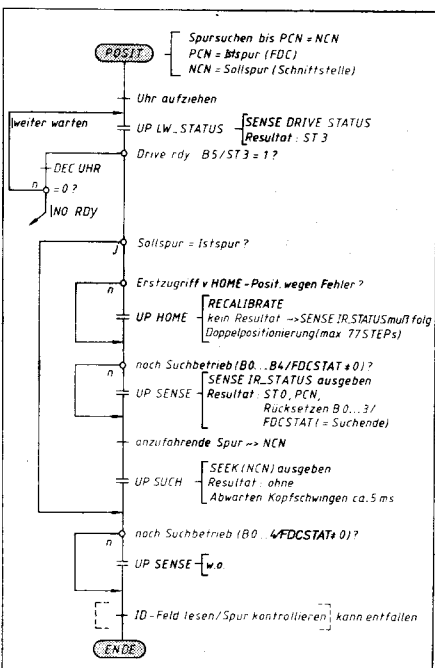 POSIT
Spursuchen bis PCN = NCN
PCN = Istspur (FDC)
NCN = Sollspur (Schnittstelle)
Uhr aufziehen
weiter warten
UP LW_STATUS
SENSE DRIVE STATUS
Resultat : ST 3
Drive rdy B5/ST3 = 1 ?
DEC UHR
n
= 0 ?
NO RDY
Sollspur = Istspur ?
j
Erstzugriff v HOME-Posit. wegen Fehler ?
n
UP HOME
RECALIBRATE
kein Resultat → SENSE IR_STATUS muß folg
Doppelpositionierung (max 77 STEPs)
noch Suchbetrieb (B0...B4/FDCSTAT ≠ 0) ?
n
UP SENSE
SENSE IR_STATUS ausgeben
Resultat : ST0, PCN,
Rücksetzen B0...3/
FDCSTAT (= Suchende)
anzufahrende Spur ~> NCN
UP SUCH
SEEK (NCN) ausgeben
Resultat : ohne
Abwarten Kopfschwingen ca. 5 ms
noch Suchbetrieb (B0...4/FDCSTAT ≠ 0) ?
n
UP SENSE
w.o.
ID-Feld lesen / Spur kontrollieren kann entfallen
ENDE